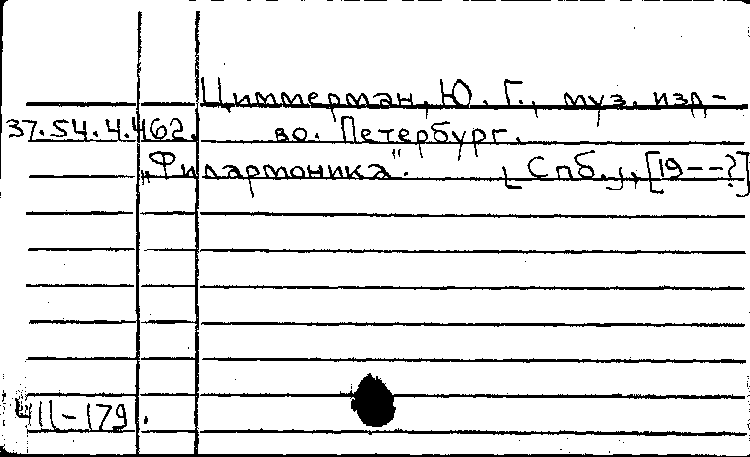 Циммерман, Ю. Г., муз. изд-
37.54.4.462. во. Петербург.
„Филармоника". [Спб.], [19--?]
411-179.